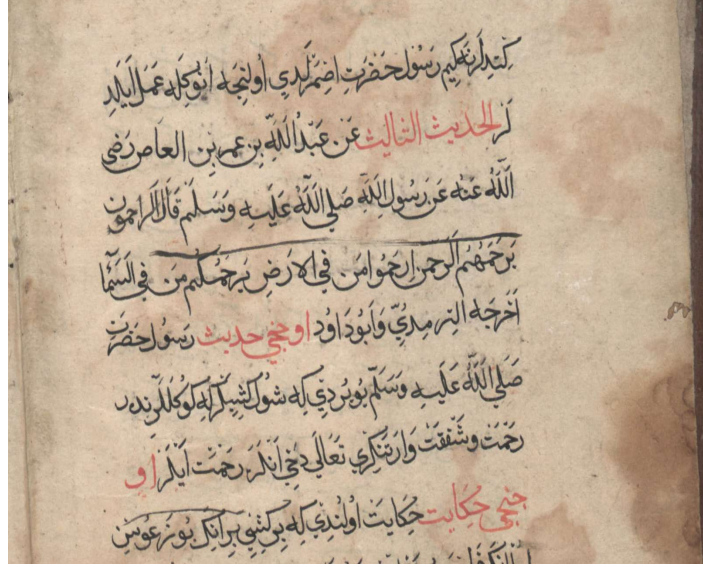 كندلرنه كيم رسول حضرت اضمرلدي اولنجه انوكله عمل ايلد
لر الحديث الثالث عن عبد الله بن عمر بن العاص رضى
الله عنه عن رسول الله صلي الله عليه وسلم قال الراحمون
يرحمهم الرحمن ارحموا من في الارض يرحمكم من في السما
اخرجه الترمدي وابو داود اوجنجي حديث رسول حضرت
صلي الله عليه وسلم بويردي كه شول كشيلركه كوكللرنده
رحمت وشفقت وار تنكري تعالى دخي انلره رحمت ايلر او
جنجي حكايت حكايت اولندي كه بر كشي بر انك يوزعوس